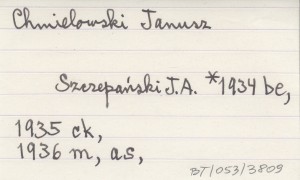 Chmielowski Janusz
Szczepański J.A. *1934 be,
1935 ck,
1936 m, as,
BT/053/3809